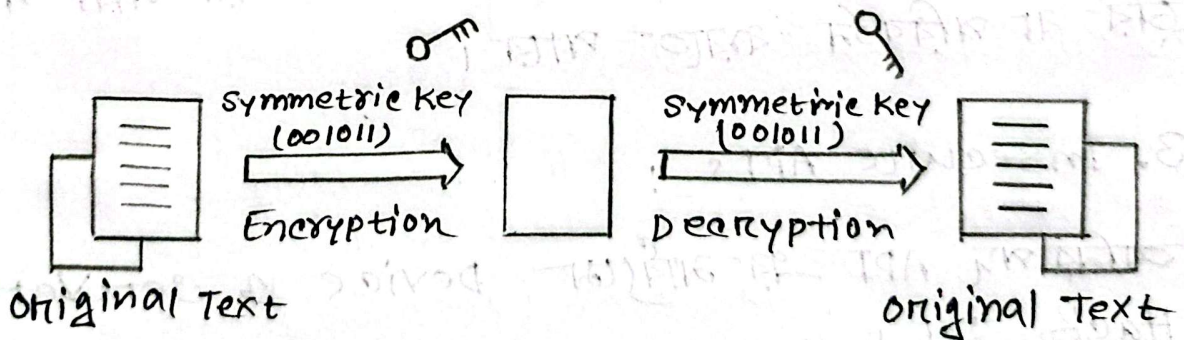 Symmetric Key
(001011)
Encryption
Symmetric Key
(001011)
Decryption
Original Text
Original Text